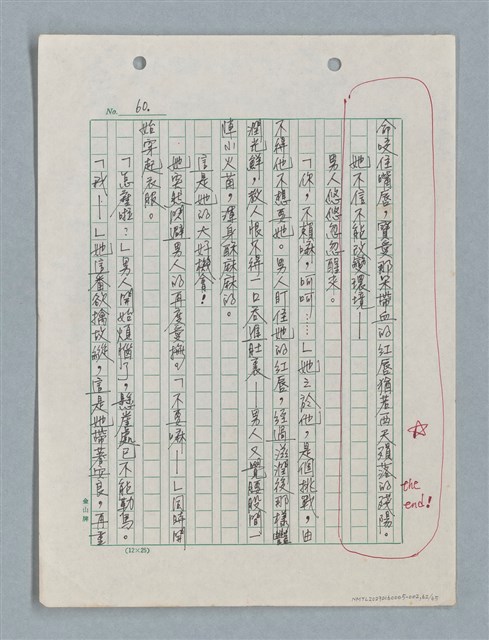 No. 60.
命咬住嘴唇，寶愛那朵帶血的紅唇猶若西天殞落的殘陽。
她不信不能改變環境——
男人悠悠忽忽醒來。
「你，不賴嘛，呵呵……」她之於他，是個挑戰，由
不得他不想要她。男人盯住她的紅唇，經過滋潤後那樣豔
潤光鮮，教人恨不得一口吞進肚裏——男人又覺腰股間一
陣小火苗，渾身酥酥麻麻的。
這是她的大好機會！
她突然閃避男人的再度愛撫。「不要嘛——」同時開
始穿起衣服。
「怎麼啦？」男人開始煩惱了，懸崖處已不能勒馬。
「我——」她這番欲擒故縱，這是她帶著四良，再重
☆
the end!
金山牌
(12×25)